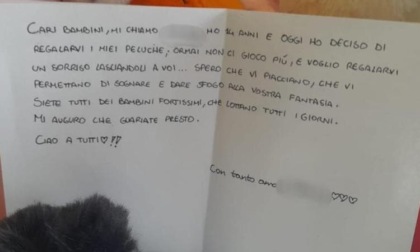 CARI BAMBINI, MI CHIAMO HO ANNI E OGGI HO DECISO DI
REGALARVI I MIEI PELUCHE, ORMAI NON CI GIOCO PIÙ, E VOGLIO REGALARVI
UN SORRISO LASCIANDOLI A VOI... SPERO CHE VI PIACCIANO, CHE VI
PERMETTANO DI SOGNARE E DARE SFOGO ALLA VOSTRA FANTASIA.
SIETE TUTTI DEI BAMBINI FORTISSIMI, CHE LOTTANO TUTTI I GIORNI.
MI AUGURO CHE GUARIATE PRESTO.
CIAO A TUTTI♡!!
Con tanto amore ♡♡♡